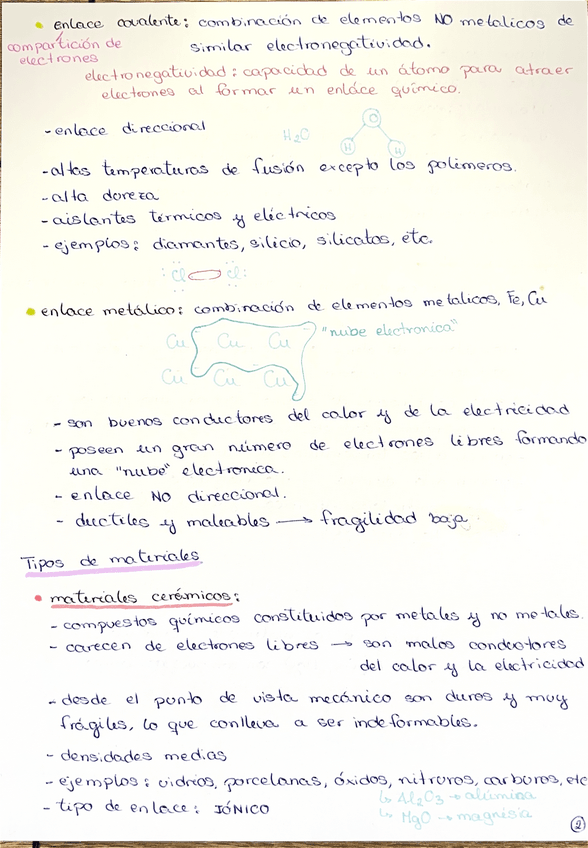 • enlace covalente: combinación de elementos NO metalicos de
compartición de electrones
similar electronegatividad.
electronegatividad: capacidad de un átomo para atraer
electrones al formar un enlace químico.
- enlace direccional
H₂O
O
H H
- altas temperaturas de fusión excepto los polimeros.
- alta dureza
- aislantes térmicos y eléctricos
- ejemplos: diamantes, silicio, silicatos, etc.
Cl Cl
• enlace metálico: combinación de elementos metalicos, Fe, Cu
Cu Cu Cu "nube electronica"
Cu Cu Cu
- son buenos conductores del calor y de la electricidad
- poseen un gran número de electrones libres formando
una "nube" electronica.
- enlace NO direccional.
- ductiles y maleables → fragilidad baja
Tipos de materiales
• materiales cerámicos:
- compuestos químicos constituidos por metales y no metales.
- carecen de electrones libres → son malos conductores
del calor y la electricidad
- desde el punto de vista mecánico son duros y muy
frágiles, lo que conlleva a ser indeformables.
- densidades medias
- ejemplos: vidrios, porcelanas, óxidos, nitruros, carburos, etc
↳ Al₂O₃ → alúmina
- tipo de enlace: IÓNICO
↳ MgO → magnesia
2